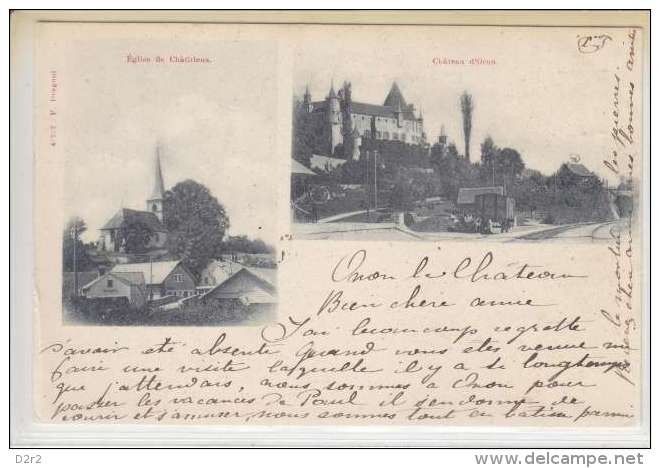 Église de Châtillens.
Château d'Oron.
Oron le Château
Bien chère amie
J'ai beaucoup regretté
d'avoir été absente quand vous êtes venue me
faire une visite laquelle il y a si longtemps
que j'attendais, nous sommes à Oron pour
passer les vacances de Paul il s'en donne de
courir et s'amuser, nous sommes tout en bâtisse parmi
les pierres
D2r2
http://www.delcampe.net